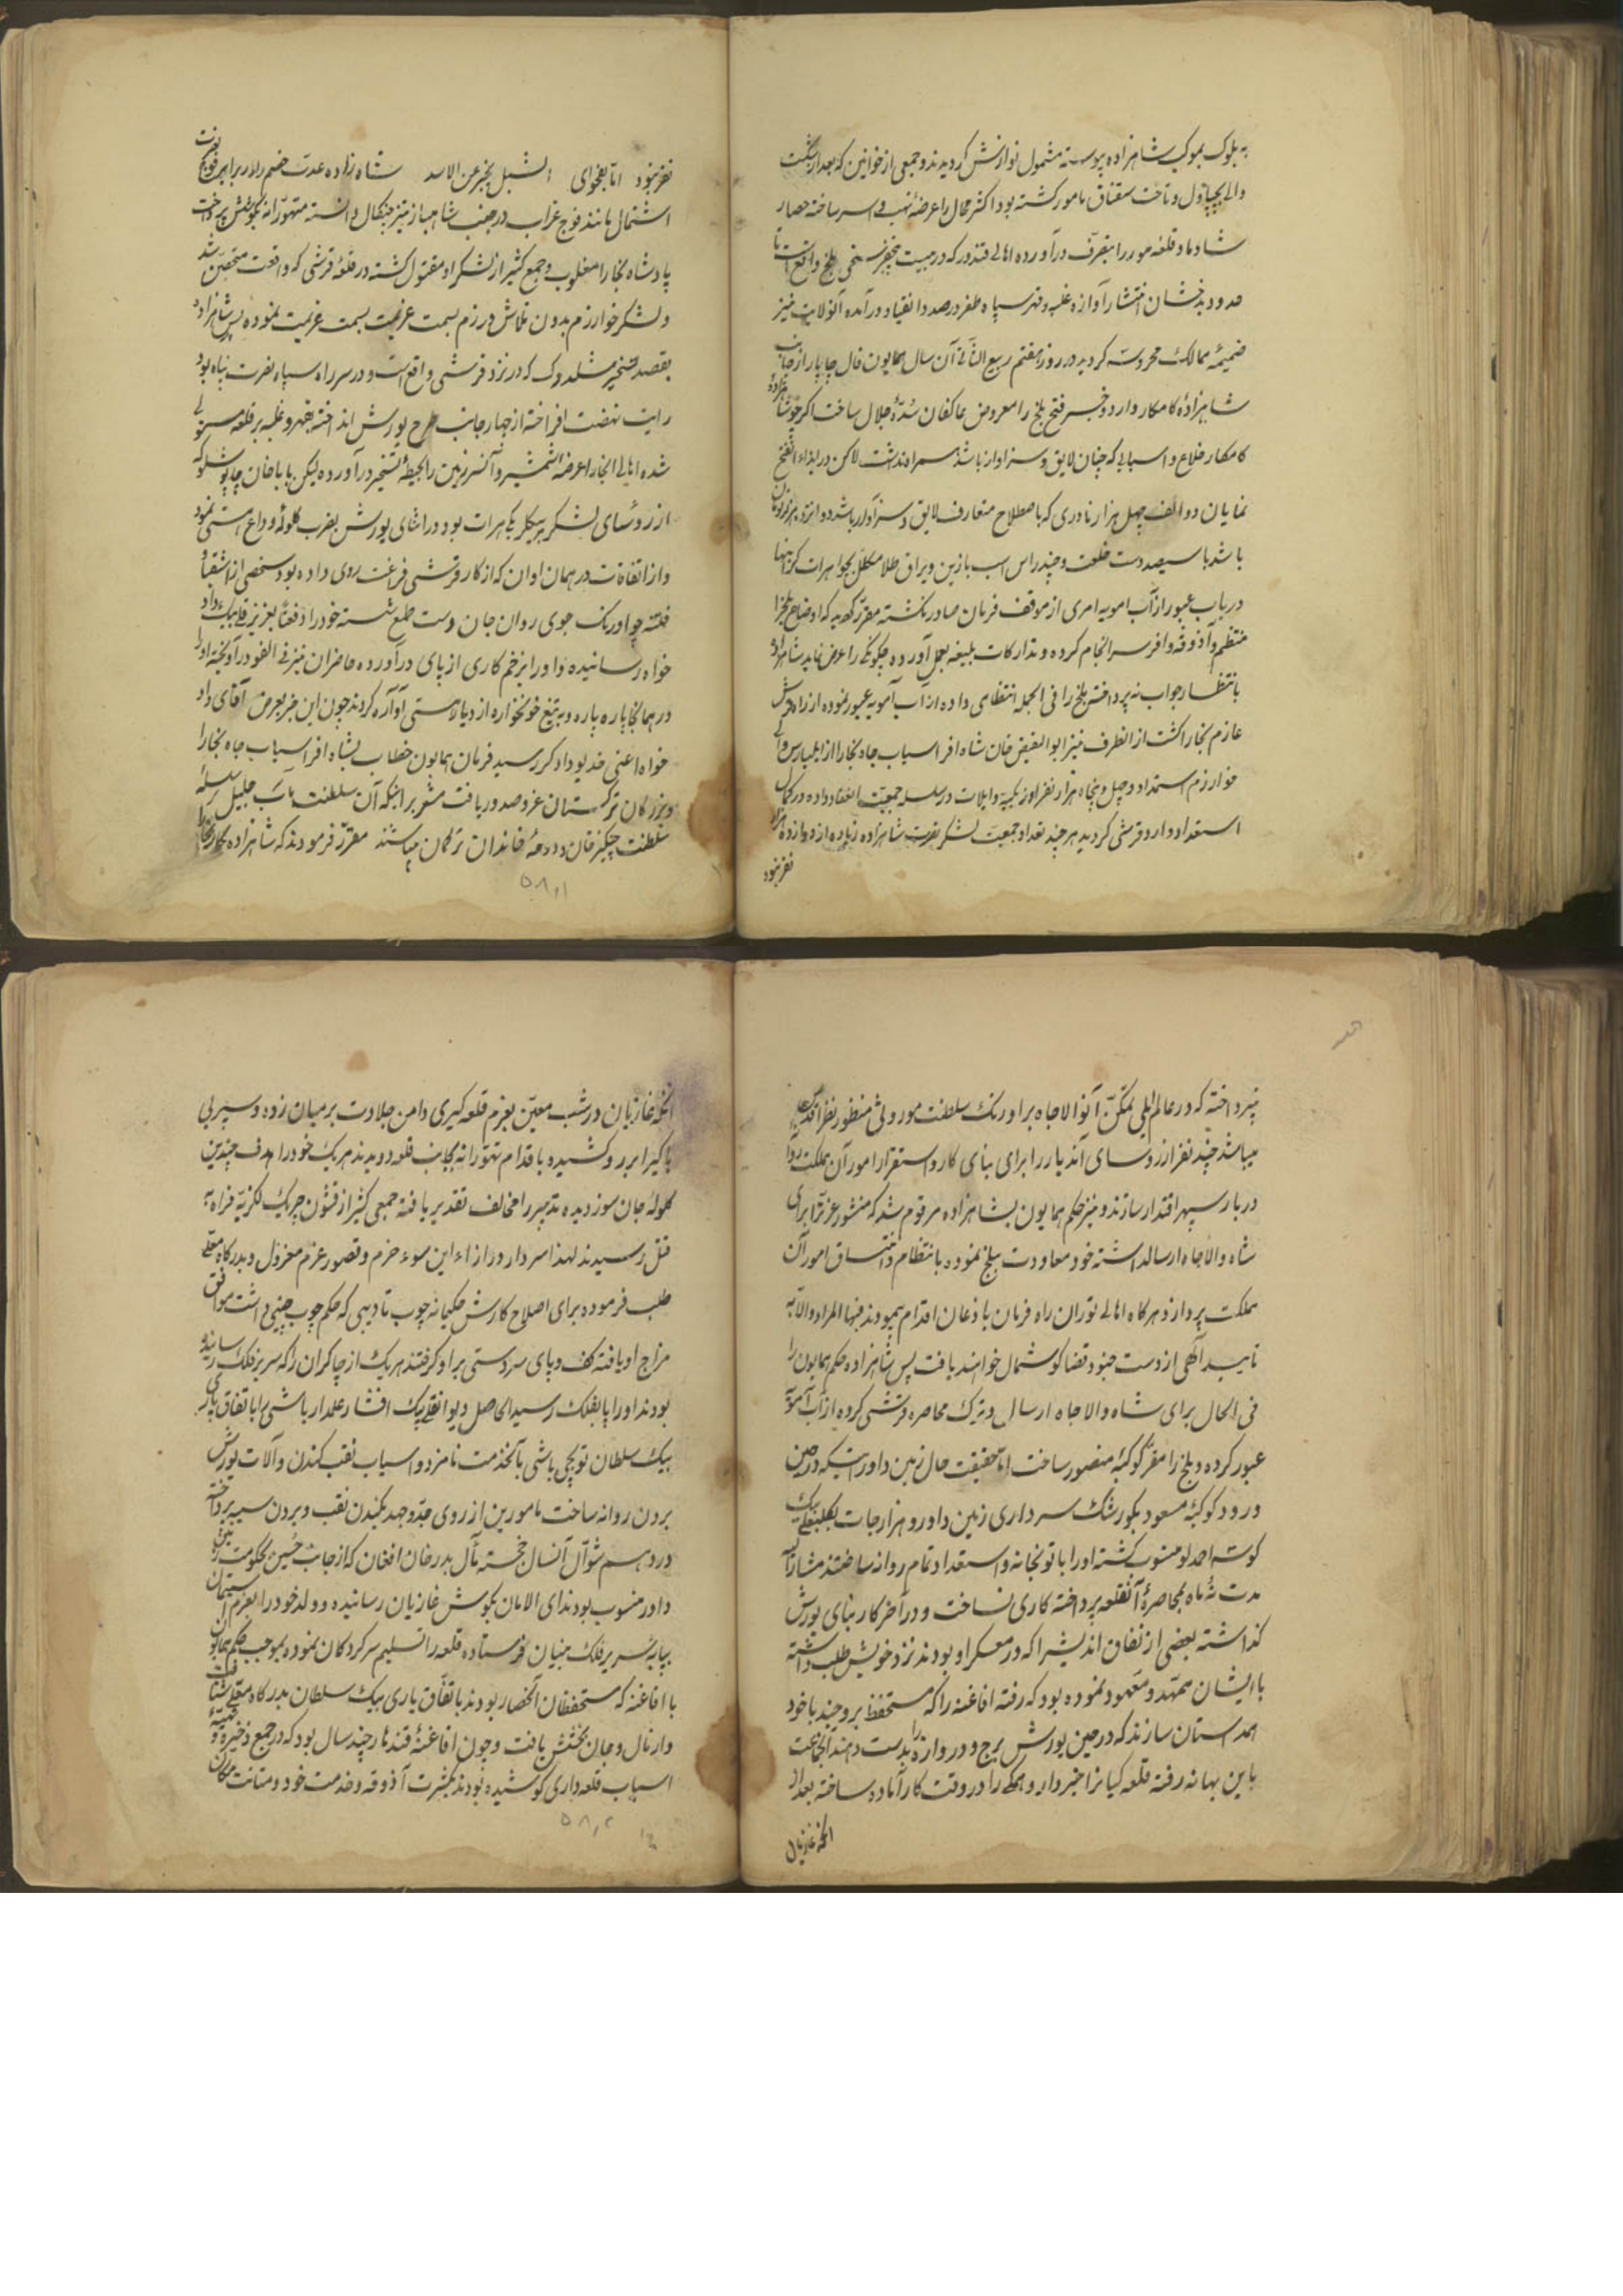 به بلوک بموکب شاهزاده پیوسته مشمول نوازش گردیدند و جمعی از خوانین که بعد از شکست
والی بچپاول و تاخت سقناق مامور گشته بود اکثر محال را عرضهٔ نهب و اسر ساخته حصار
شادمان و قلعه مور را بتصرف درآورده اهالی قندوز که در بیست پنج فرسخی بلخ واقع است تا
حدود بدخشان انتشار آوازه غلبه و قهر سپاه ظفر درصدد انقیاد درآمده آنولایت نیز
ضمیمهٔ ممالک محروسه گردید در روز هفتم ربیع الثانی آن سال همایون فال چاپار از جانب
شاهزادهٔ کامکار وارد و خبر فتح بلخ را معروض عاکفان سدّهٔ جلال ساخت اگرچه شاهزادهٔ
کامکار قلاع و اسبابی که چنان لایق و سزاوار باشد سر او نداشت لاکن در ابتداء الفتح
نمایان دو الف چهل هزار نادری که باصطلاح متعارف لایق و سزاوار باشد دوانزده هزار تومان
باشد با سیصد دست خلعت و چند راس اسب با زین و یراق طلا مکلل بجواهرات گرانبها
در باب عبور از آب امویه امری از موقف فرمان صادر نگشته مقرر گردید که اوضاع بلخ را
منتظم و آذوقه وافر سرانجام کرده و تدارکات بلیغه بعمل آورده چگونگی را عرض نماید شاهزاده
بانتظار جواب نه پرداخته بلخ را فی الجمله انتظامی داده از آب آمویه عبور نموده از راه قرشی
عازم بخارا گشت از انطرف نیز ابوالفیض خان شاه افراسیاب جاه بخارا از ایلبارس والی
خوارزم استمداد و چهل و پنجاه هزار نفر اوزبکیه و ایلات در سلسله جمعیت انعقاد داده در کمال
استعداد وارد قرشی گردید هر چند تعداد جمعیت لشکر نصرت شاهزاده زیاده از دوازده هزار
نفر نبود
نفر نبود اما بفحوای الشبل یخبر عن الاسد شاه زاده عدت خصم را در برابر فوج نصرت
اشتمال مانند فوج غراب در جنب شاهباز تیز چنگال دانسته متهورانه بکوشش پرداخت
پادشاه بخارا مغلوب و جمع کثیر از لشکر او مقتول گشته در قلعهٔ قرشی که واقعست متحصن شد
و لشکر خوارزم بدون تلاش و رزم بسمت عزیمت نموده پس شاهزاده
بقصد تسخیر شلدوک که در نزد قرشی واقع است و در سر راه سپاه نصرت پناه بود
رایت نهضت افراخته از چهار جانب طرح یورش انداخته بقهر و غلبه بر قلعه مستولی
شده اهالی انجا را عرضه شمشیر و آنسرزمین را بحیطهٔ تسخیر درآورده لیکن بابا خان چاپوشلو که
از رؤسای لشکر و بیگلر بیگی هرات بود در اثنای یورش بضرب گلوله وداع هستی نمود
و از اتفاقات در همان اوان که از کار قرشی فراغت روی داده بود شخصی از اشقیا و
فتنه جو اورنک جوی روان جان دست طمع شسته خود را دفعةً بعزیز قلی بیک داد
خواه رسانیده و او را بزخم کاری از پای درآورده حاضران نیز فی الفور درآویخته او را
در همانجا پاره پاره و به تیغ خونخواره از دیار هستی آواره کردند چون این خبر بعرض آقای داد
خواه اعنی خدیو دادگر رسید فرمان همایون خطاب بشاه افراسیاب جاه بخارا
و بزرکان ترکستان عز صدور یافت مشعر بر اینکه آن سلطنت مآب جلیل سلسلهٔ
سلطنت چنگیزخان و دودمهٔ خاندان ترکمان میباشند مقرر فرمودند که شاهزاده بکار بخارا
۵۸٫۱
نپرداخته که در عالم ایلی تمکن آنوالاجاه بر اورنک سلطنت موروثی منظور نظر اقدس
میباشد چند نفر از رؤسای آندیار را برای بنای کار و استقرار امور آن مملکت روانه
دربار سپهر اقتدار سازند و نیز حکم همایون بشاهزاده مرقوم شد که منشور عز نرا برای
شاه والاجاه ارسال داشته خود معاودت ببلخ نموده بانتظام و اتساق امور آن
مملکت پردازد و هرگاه اهالی توران راه فرمان باذعان اقدام پیمودند فبها المراد والا به
تایید آلهی از دست جنود قضا گوشمال خواهند یافت پس شاهزاده حکم همایون را
فی الحال برای شاه والاجاه ارسال و ترک محاصره قرشی کرده از آب آمویه
عبور کرده و بلخ را مقر کوکبه منصور ساخت اما حقیقت حال زمین داور اینستکه در حین
ورود کوکبهٔ مسعود بکورشک سرداری زمین داور و هزارجات بکلبعلی بیک
کوسه احمدلو منسوب گشته او را با توپخانه و استعداد تمام روانه ساختند مشارالیه
مدت نه ماه بمحاصرهٔ آنقلعه پرداخته کاری نساخت و در آخر کار بنای یورش
گذاشته بعضی از نفاق اندیشرا که در معسکر او بودند نزد خویش طلب داشته
با ایشان ممهد و معهود نموده بود که رفته افاغنه را که مستحفظ بروجند با خود
همداستان سازند که در حین یورش برج و دروازه را بدست دهند انجماعت
باین بهانه رفته قلعه گیانرا خبردار و همگی را در وقت کار آماده ساخته بعد از
انکه غازیان
انکه غازیان در شب معین بعزم قلعه گیری دامن جلادت بر میان زده و سپر بی
باکی را بر رو کشیده باقدام تهورانه بجانب قلعه دویدند هر یک خود را هدف چندین
گلولهٔ جان سوز دیده تدبیر را مخالف تقدیر یافته جمعی کثیر از قشون چریک لکزیهٔ فراه به
قتل رسیدند لهذا سردار در ازاء این سوء حزم و قصور عزم معزول و بدرگاه معلی
طلب فرموده برای اصلاح کارش حکیمانه چوب تادیبی که حکم چوب چینی داشت موافق
مزاج او یافته کف و پای سردستی بر او گرفتند هر یک از چاکران را که سر بر فلک رسانیده
بودند او را پا بفلک رسید الحاصل دیوانقلی بیک افشار علمدار باشی را باتفاق یاری
بیک سلطان توپچی باشی بآنخدمت نامزد و اسباب نقب کندن و آلات یورش
بردن روانه ساخت مامورین از روی جد و جهد بکندن نقب و بردن سیبه پرداخته
در دهم شوال آنسال خجسته مآل بدر خان افغان که از جانب حسین بحکومت زمین
داور منسوب بود ندای الامان بگوش غازیان رسانیده و ولد خود را بعزم آستان
بپایهٔ سریر فلک بنیان فرستاده قلعه را تسلیم سرکردکان نموده بموجب حکم همایون
با افاغنه که مستحفظان انحصار بودند باتفاق یاری بیک سلطان بدرگاه معلی شتافت
و از مال و جان بخشش یافت و چون افاغنهٔ قندهار چند سال بود که در جمع ذخیره و
اسباب قلعه داری کوشیده بودند بکثرت آذوقه و خدمت خود و متانت مکان
۵۸٫۲